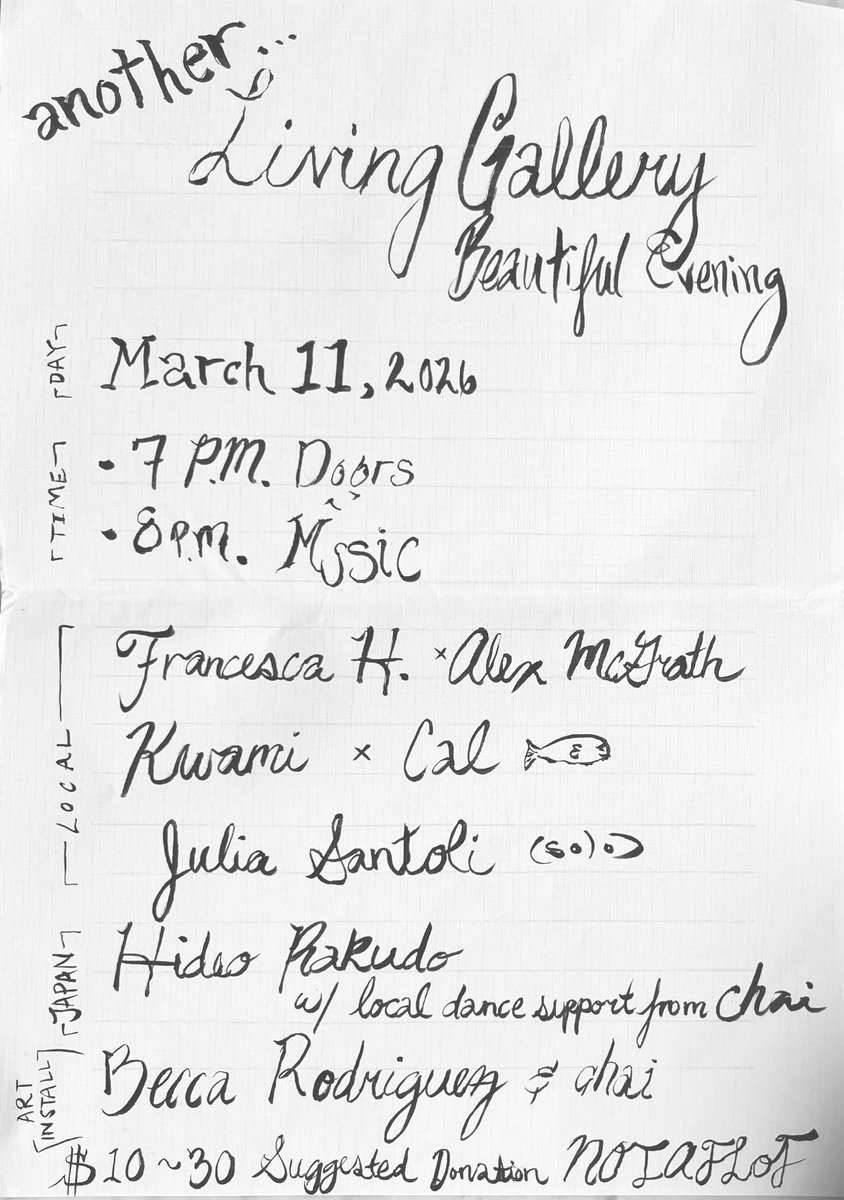 another...
Living Gallery
Beautiful Evening
DAY
March 11, 2026
TIME
• 7 P.M. Doors
• 8 P.M. Music
LOCAL
Francesca H. × Alex McGrath
Kwami × Cal
Julia Santoli (solo)
JAPAN
Hideo Rakudo
w/ local dance support from chai
ART INSTALL
Becca Rodriguez & chai
$10~30 Suggested Donation NOTAFLOF